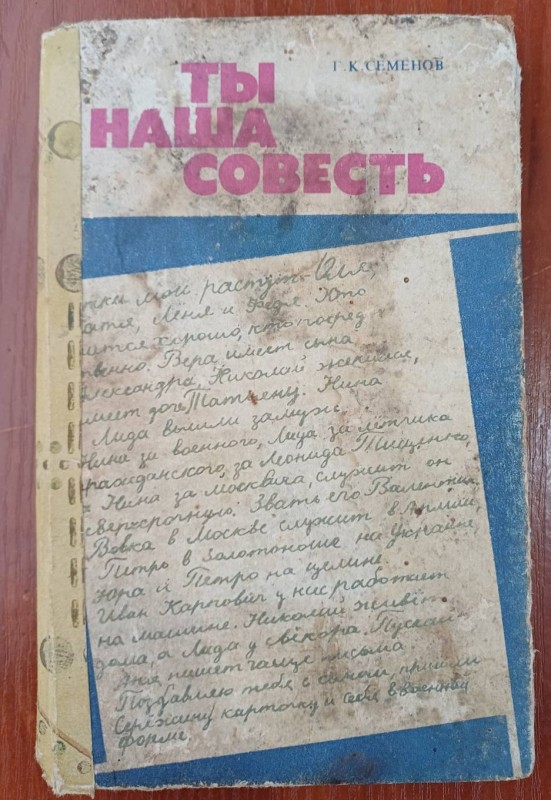 Г. К. СЕМЕНОВ
ТЫ
НАША
СОВЕСТЬ
тки мои растут. Оля,
атя, Лёня и Федя. Кто
ится хорошо, кто посред
твенно. Вера имеет сына
лександра, Николай женился,
меет дочь Татьяну. Нина
Лида вышли замуж.
Нина за военного, Лида за лётчика
гражданского, за Леонида Тищенко,
Нина за москвича, служит он
сверхсрочную. Звать его Валентин.
Вовка в Москве служит в Армии,
Петро в Золотоноше на Украине,
Юра и Петро на целине.
Иван Карпович у них работает
на машине. Николай живёт
дома, а Лида у свёкора. Пускай
Аня пишет чаще письма.
Поздравляю тебя с сыном, пришли
Серёжину карточку и себя в военной
форме.